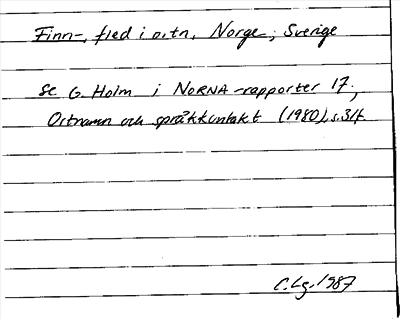 Finn-, fled i o.tn, Norge, Sverige
se G. Holm i NORNA-rapporter 17,
Ortnamn och språkkontakt (1980), s.34.
C.Lg. 1987